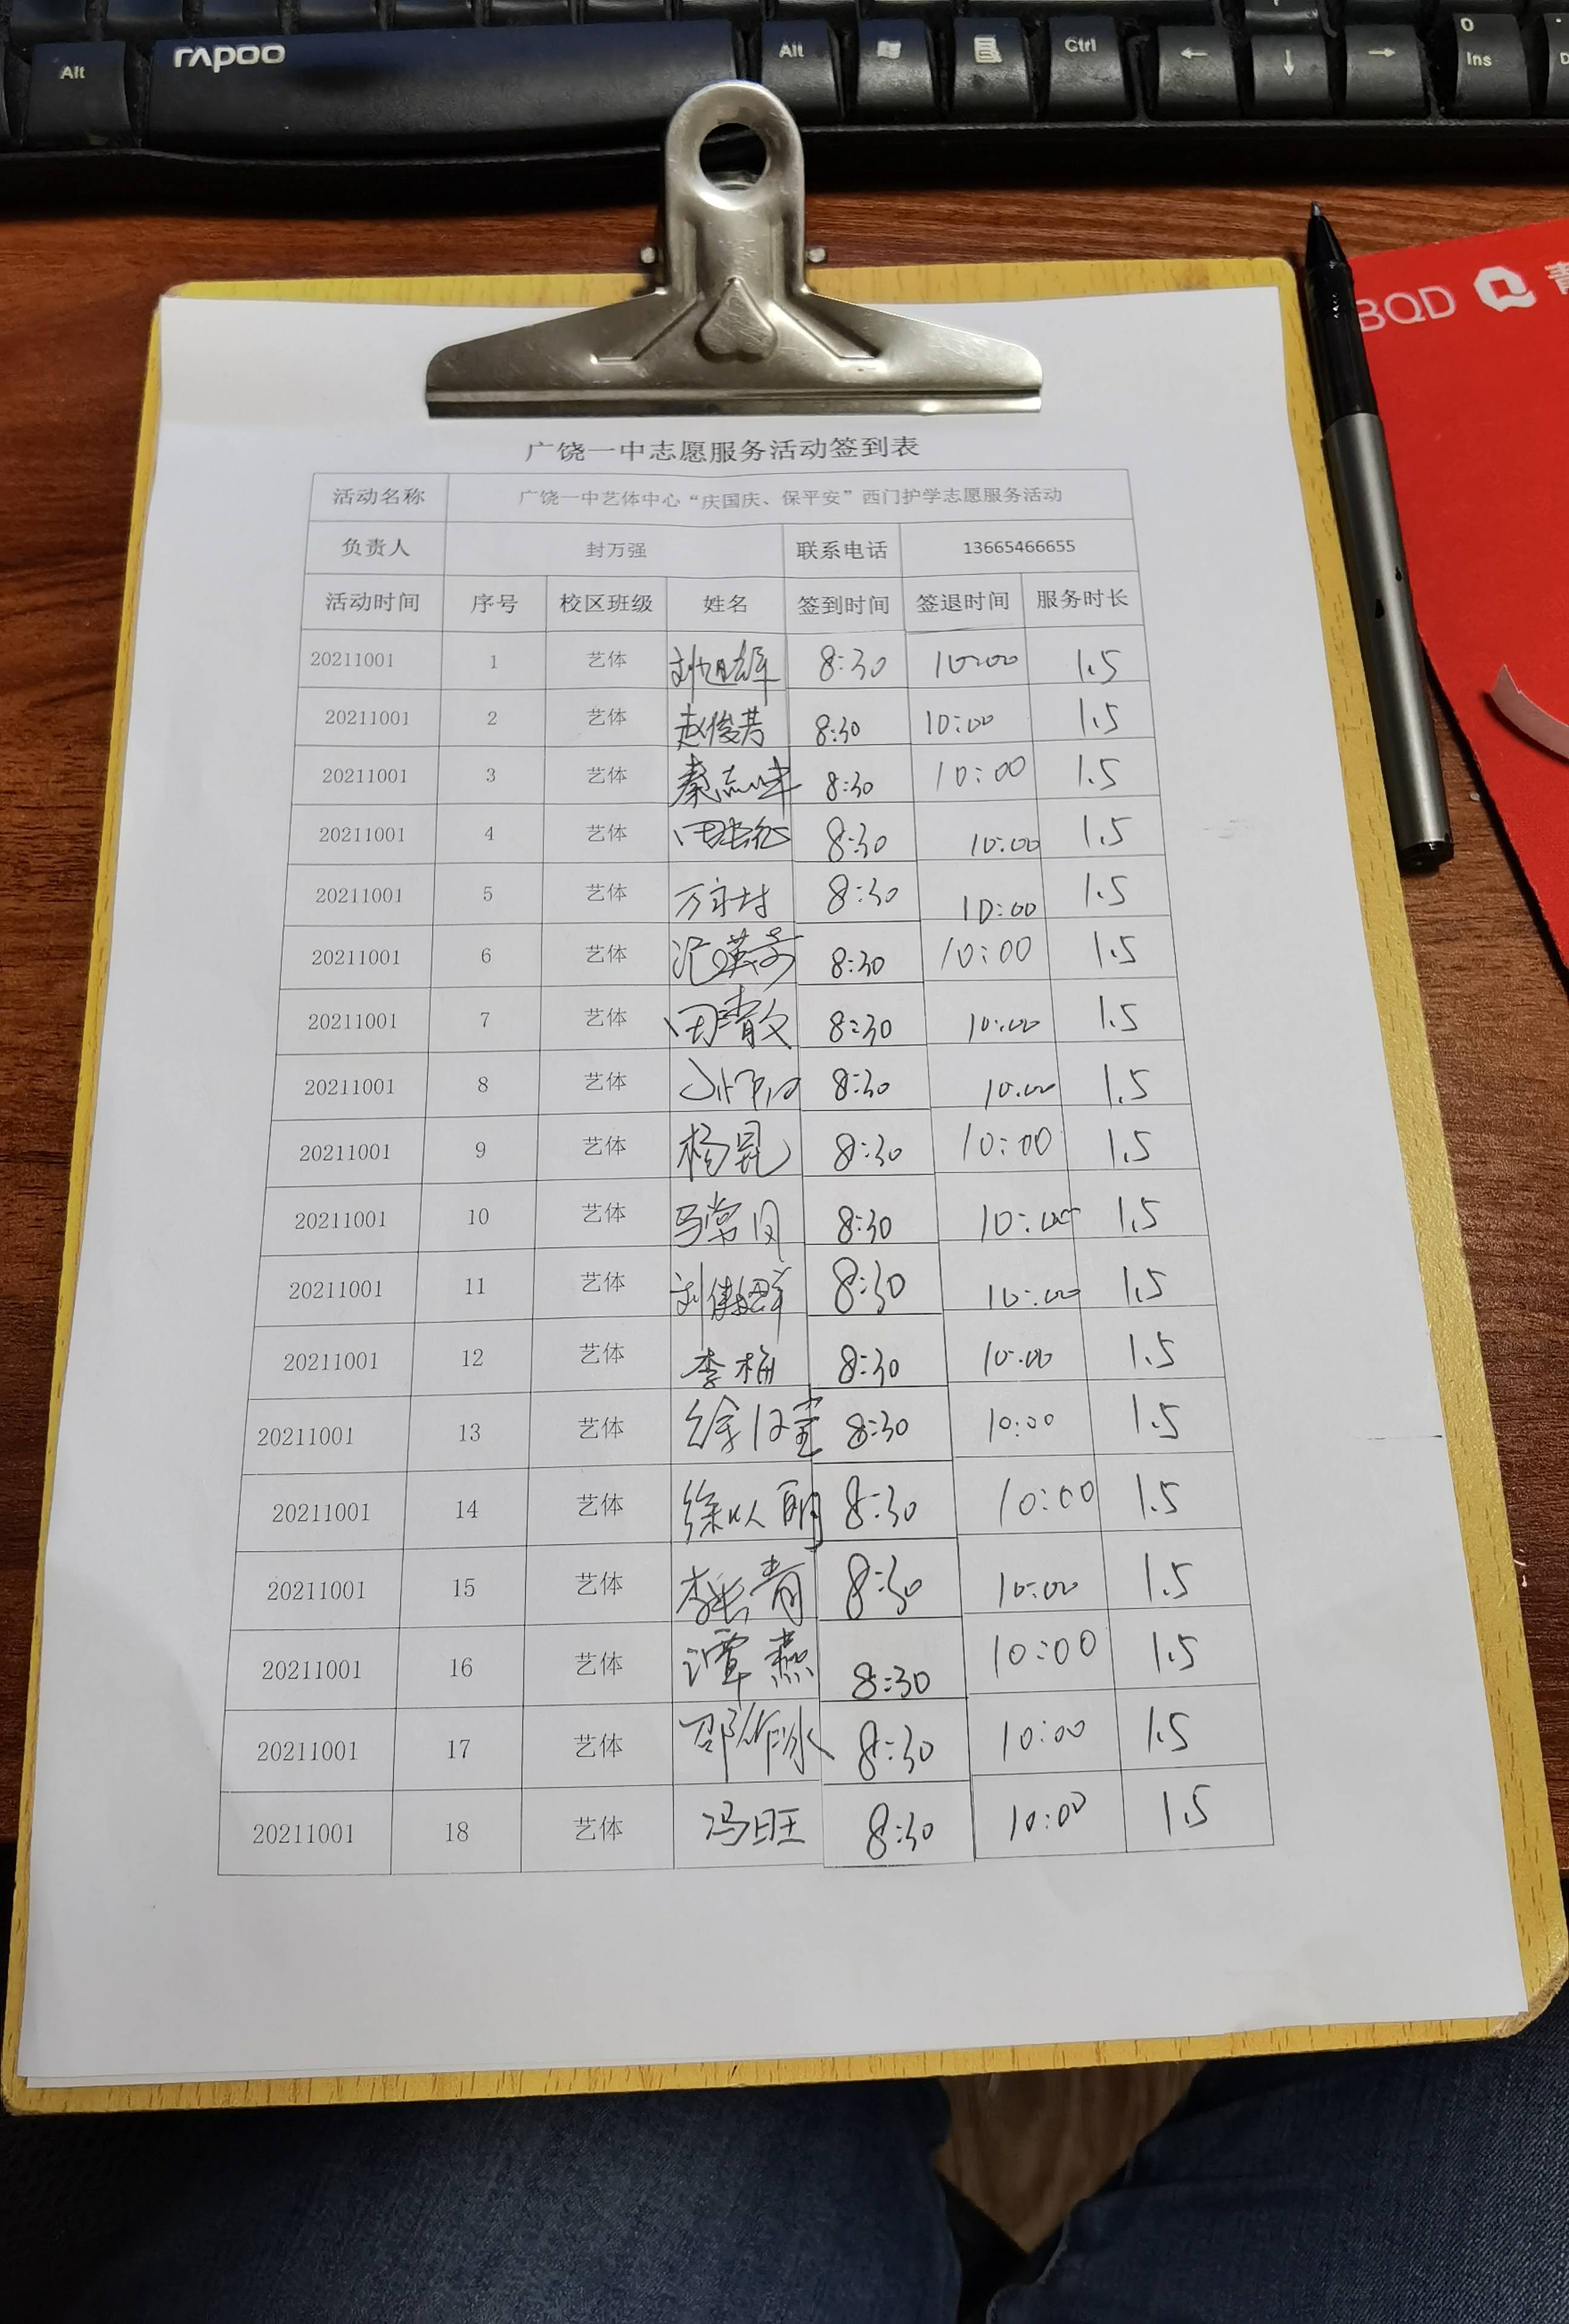 Alt
rapoo
Alt
Ctrl
←
↓
→
0
Ins
BQD
广饶一中志愿服务活动签到表
活动名称 广饶一中艺体中心“庆国庆、保平安”西门护学志愿服务活动
负责人 封万强 联系电话 13665466655
活动时间 序号 校区班级 姓名 签到时间 签退时间 服务时长
20211001 1 艺体 8:30 10:00 1.5
20211001 2 艺体 赵俊芳 8:30 10:00 1.5
20211001 3 艺体 8:30 10:00 1.5
20211001 4 艺体 8:30 10:00 1.5
20211001 5 艺体 8:30 10:00 1.5
20211001 6 艺体 8:30 10:00 1.5
20211001 7 艺体 8:30 10:00 1.5
20211001 8 艺体 8:30 10:00 1.5
20211001 9 艺体 杨昆 8:30 10:00 1.5
20211001 10 艺体 8:30 10:00 1.5
20211001 11 艺体 8:30 10:00 1.5
20211001 12 艺体 李梅 8:30 10:00 1.5
20211001 13 艺体 8:30 10:00 1.5
20211001 14 艺体 徐以明 8:30 10:00 1.5
20211001 15 艺体 李长青 8:30 10:00 1.5
20211001 16 艺体 谭燕 8:30 10:00 1.5
20211001 17 艺体 8:30 10:00 1.5
20211001 18 艺体 冯旺 8:30 10:00 1.5